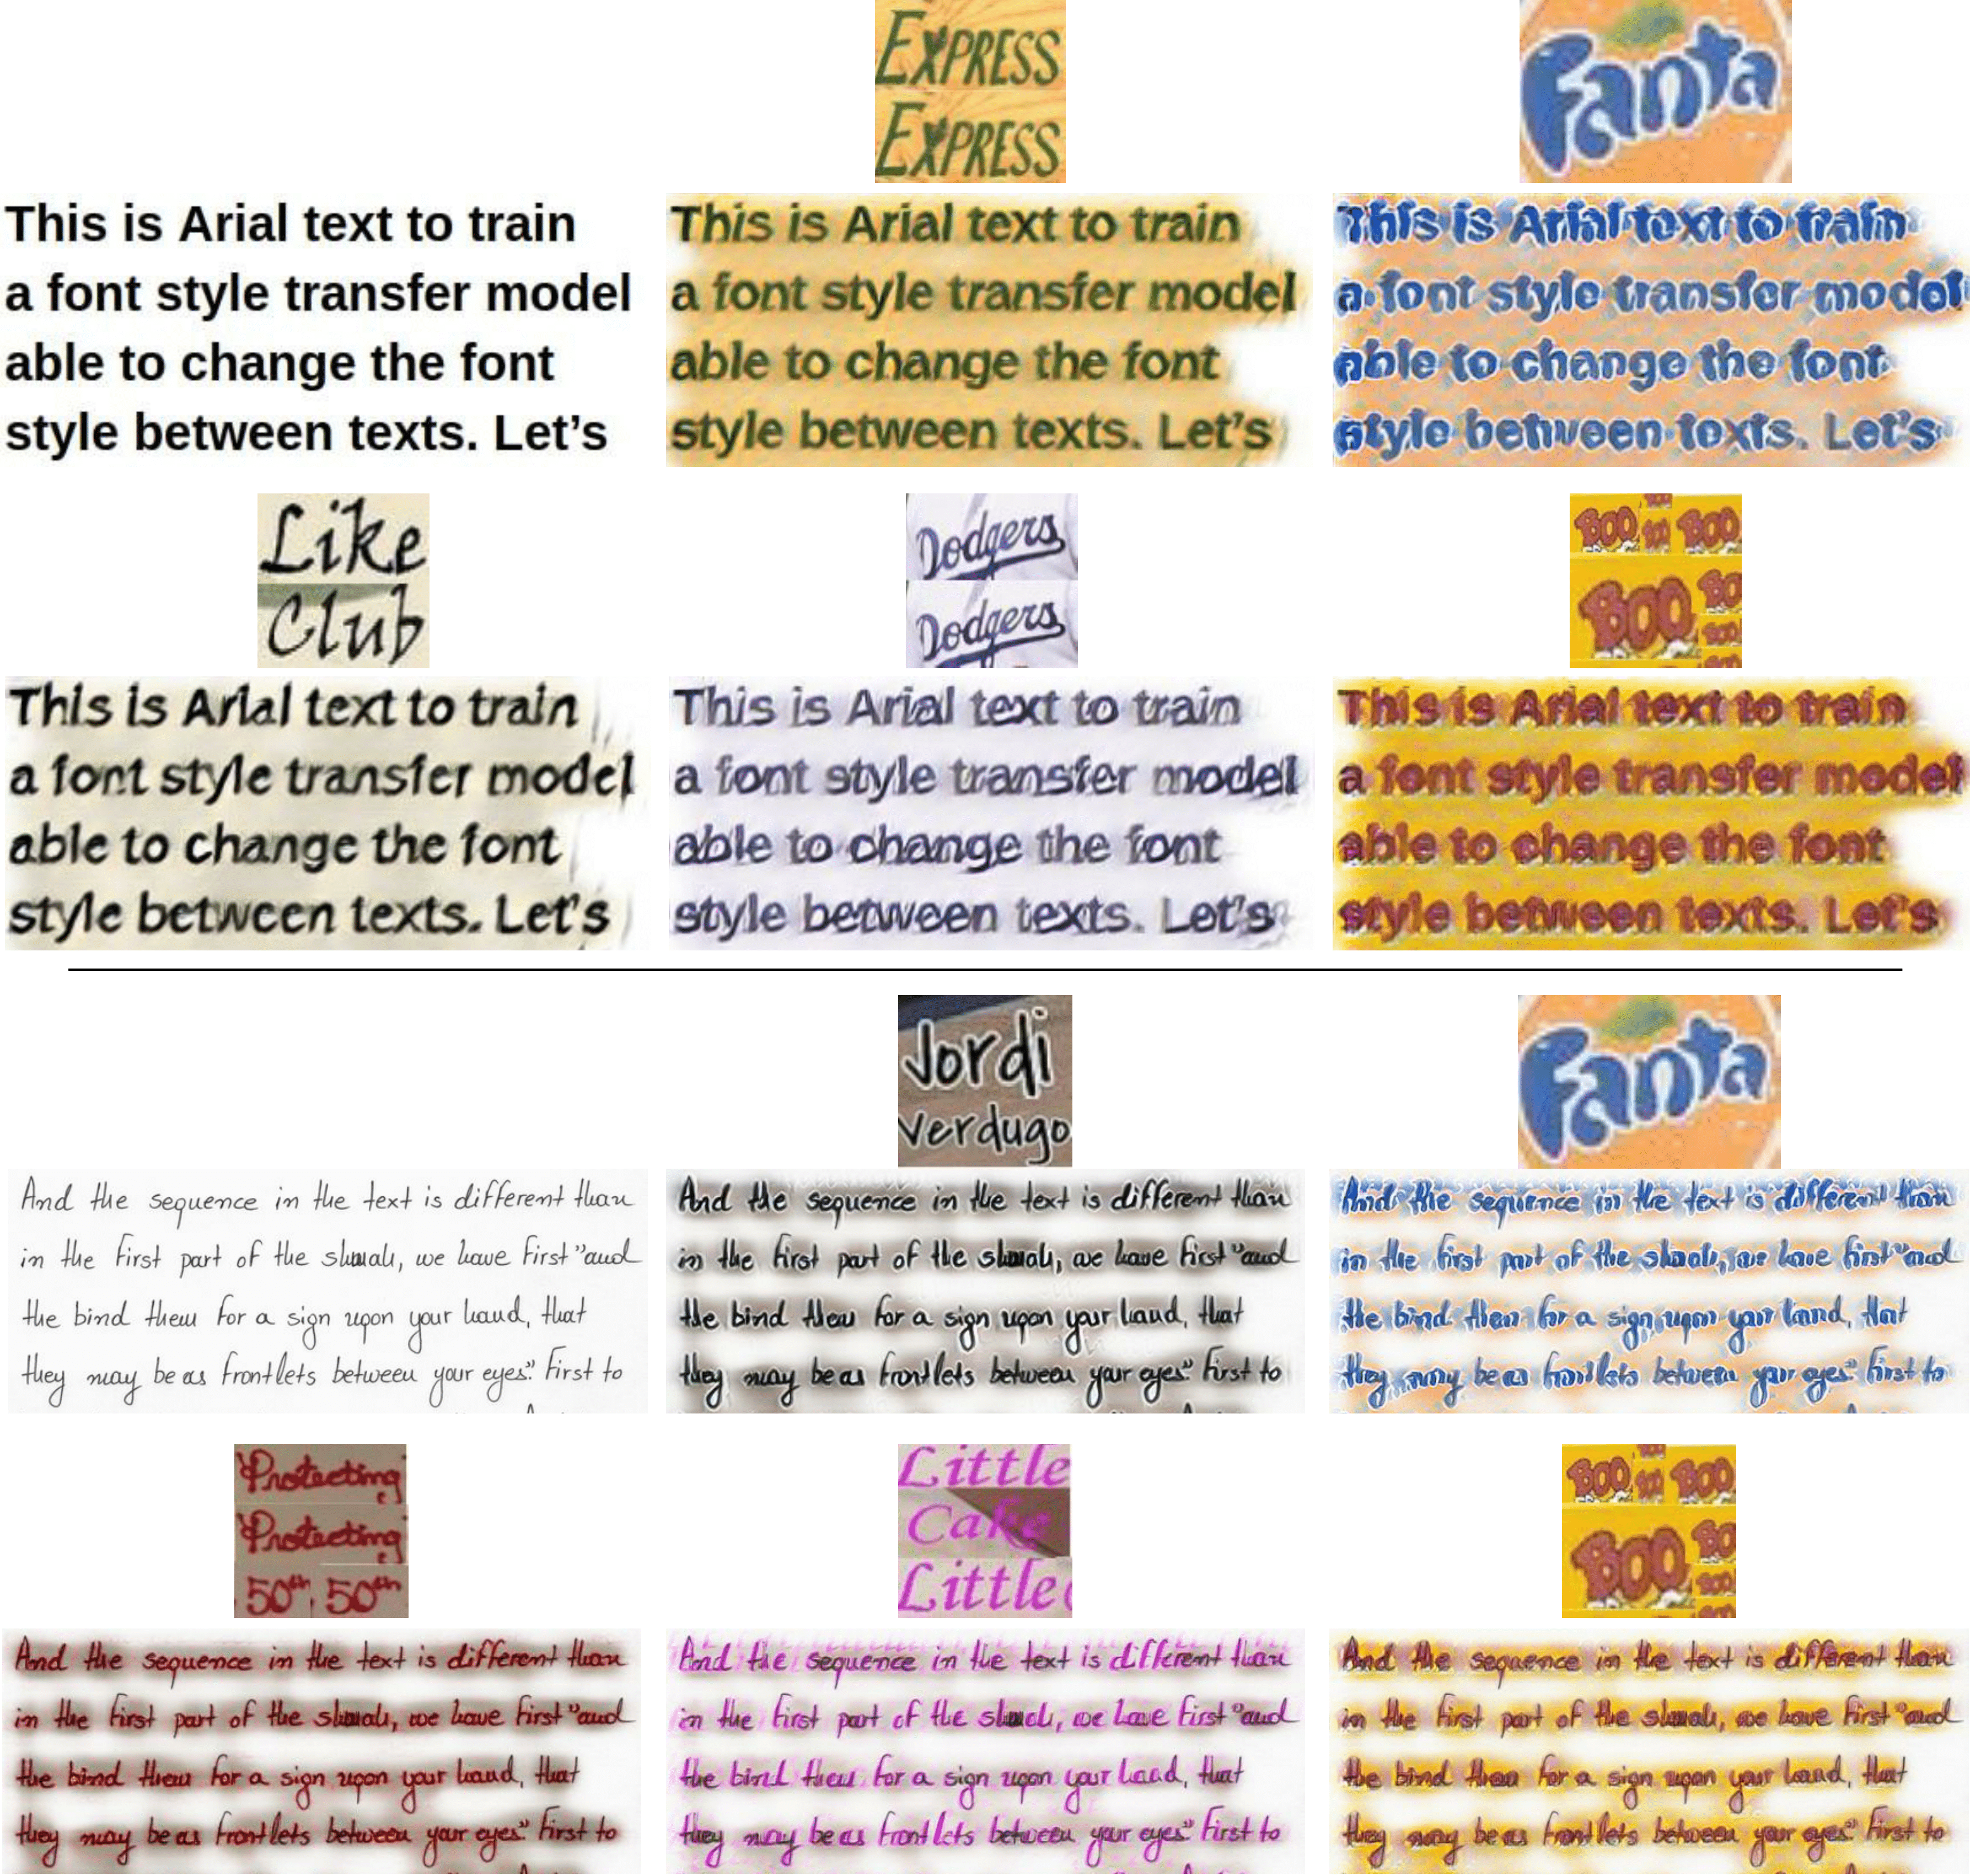 EXPRESS
EXPRESS
Fanta
This is Arial text to train
a font style transfer model
able to change the font
style between texts. Let's
This is Arial text to train
a font style transfer model
able to change the font
style between texts. Let's
This is Arial text to train
a font style transfer model
able to change the font
style between texts. Let's
Like
Club
Dodgers
Dodgers
BOO BOO BOO
BOO BO
BOO
This is Arial text to train
a font style transfer model
able to change the font
style between texts. Let's
This is Arial text to train
a font style transfer model
able to change the font
style between texts. Let's
This is Arial text to train
a font style transfer model
able to change the font
style between texts. Let's
Jordi
Verdugo
Fanta
And the sequence in the text is different than
in the first part of the we have first "and
the bind them for a sign upon your hand, that
they may be as frontlets between your eyes." First to
And the sequence in the text is different than
in the first part of the we have first "and
the bind them for a sign upon your hand, that
they may be as frontlets between your eyes." First to
And the sequence in the text is different than
in the first part of the we have first "and
the bind them for a sign upon your hand, that
they may be as frontlets between your eyes." First to
Protecting
Protecting
50th 50th
Little
Cake
Little
BOO BOO BOO
BOO BO
BOO
And the sequence in the text is different than
in the first part of the we have first "and
the bind them for a sign upon your hand, that
they may be as frontlets between your eyes." First to
And the sequence in the text is different than
in the first part of the we have first "and
the bind them for a sign upon your hand, that
they may be as frontlets between your eyes." First to
And the sequence in the text is different than
in the first part of the we have first "and
the bind them for a sign upon your hand, that
they may be as frontlets between your eyes." First to